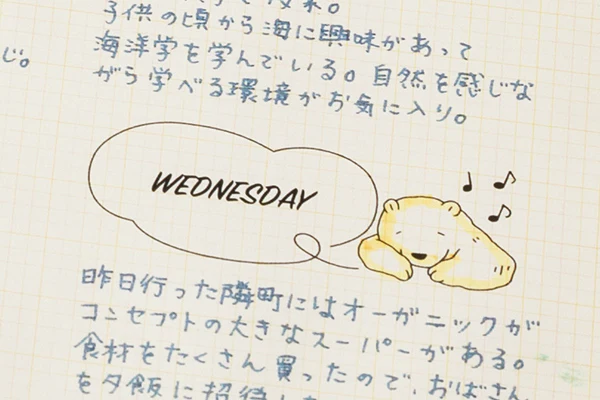 子供の頃から海に興味があって
海洋学を学んでいる。自然を感じな
じ。
がら学べる環境がお気に入り。
WEDNESDAY
昨日行った隣町にはオーガニックが
コンセプトの大きなスーパーがある。
食材をたくさん買ったので、おばさん
を夕飯に招待した